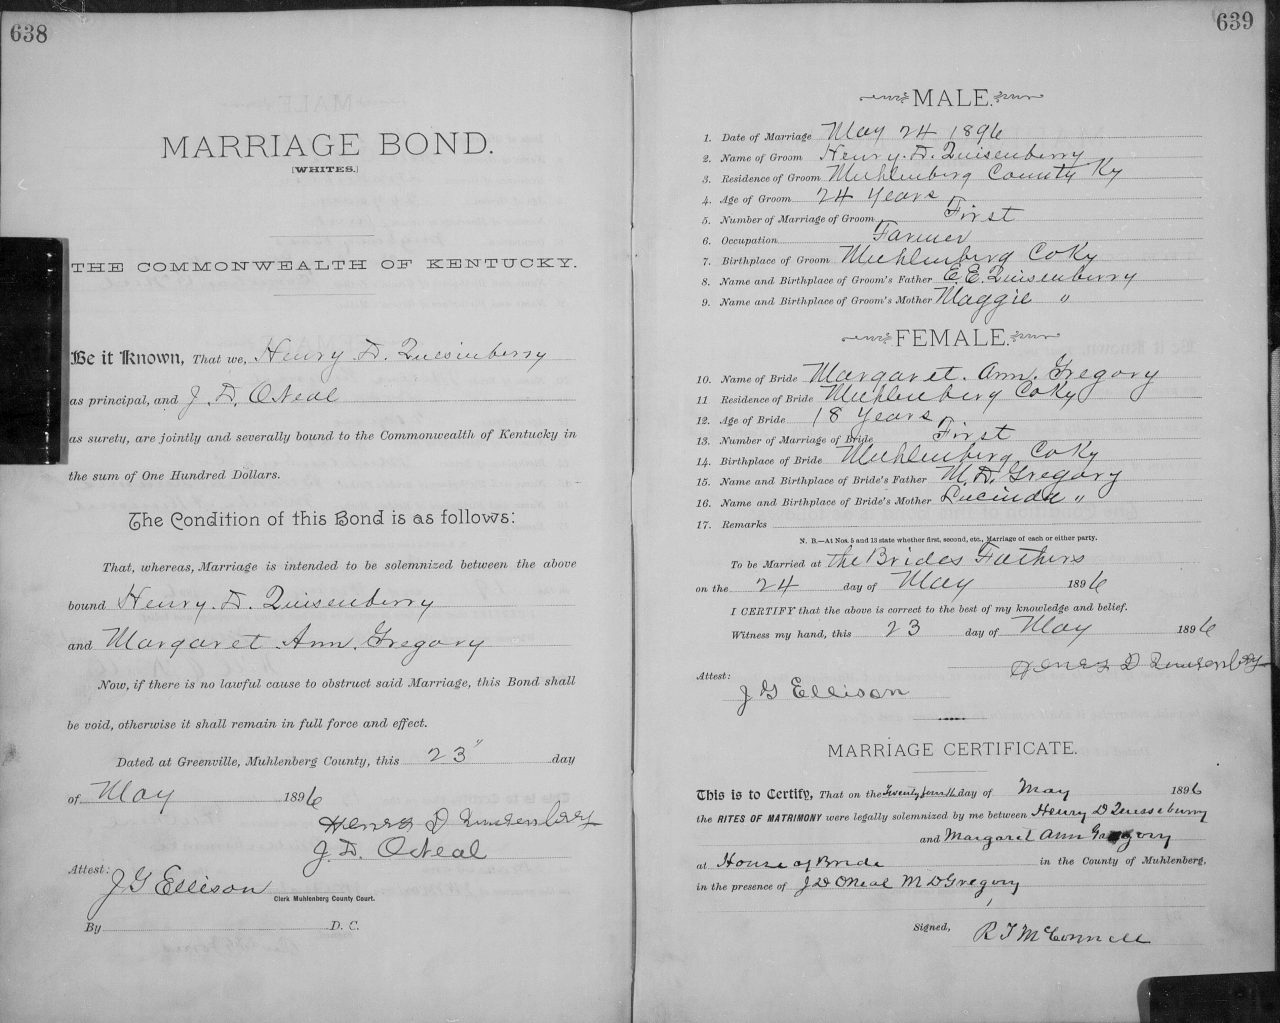 638
MARRIAGE BOND.
[WHITES.]
THE COMMONWEALTH OF KENTUCKY.
Be it Known, That we, Henry. D. Quesinberry
as principal, and J. D. ONeal
as surety, are jointly and severally bound to the Commonwealth of Kentucky in
the sum of One Hundred Dollars.
The Condition of this Bond is as follows:
That, whereas, Marriage is intended to be solemnized between the above
bound Henry. D. Quisenberry
and Margaret Ann. Gregory
Now, if there is no lawful cause to obstruct said Marriage, this Bond shall
be void, otherwise it shall remain in full force and effect.
Dated at Greenville, Muhlenberg County, this 23" day
of May 1896
Henry D Quisenberry
J. D. ONeal
Attest: J G Ellison
Clerk Muhlenberg County Court.
By D. C.
639
MALE.
1. Date of Marriage May 24 1896
2. Name of Groom Henry. D. Quisenberry
3. Residence of Groom Muhlenberg County Ky
4. Age of Groom 24 Years
5. Number of Marriage of Groom First
6. Occupation Farmer
7. Birthplace of Groom Muhlenberg Co Ky
8. Name and Birthplace of Groom's Father E. E. Quisenberry
9. Name and Birthplace of Groom's Mother Maggie "
FEMALE.
10. Name of Bride Margaret. Ann. Gregory
11 Residence of Bride Muhlenberg Co Ky
12. Age of Bride 18 Years
13. Number of Marriage of Bride First
14. Birthplace of Bride Muhlenberg Co Ky
15. Name and Birthplace of Bride's Father M. D. Gregory
16. Name and Birthplace of Bride's Mother Lucinda "
17. Remarks
N. B.—At Nos. 5 and 13 state whether first, second, etc., Marriage of each or either party.
To be Married at the Brides Fathers
on the 24 day of May 1896
I CERTIFY that the above is correct to the best of my knowledge and belief.
Witness my hand, this 23 day of May 1896
Henry D Quisenberry
Attest:
J G Ellison
MARRIAGE CERTIFICATE.
This is to Certify, That on the Twenty fourth day of May 1896
the RITES OF MATRIMONY were legally solemnized by me between Henry D
and Margaret Ann Gregory
at House of Bride in the County of Muhlenberg,
in the presence of J D ONeal M D Gregory
Signed, R T McConnell